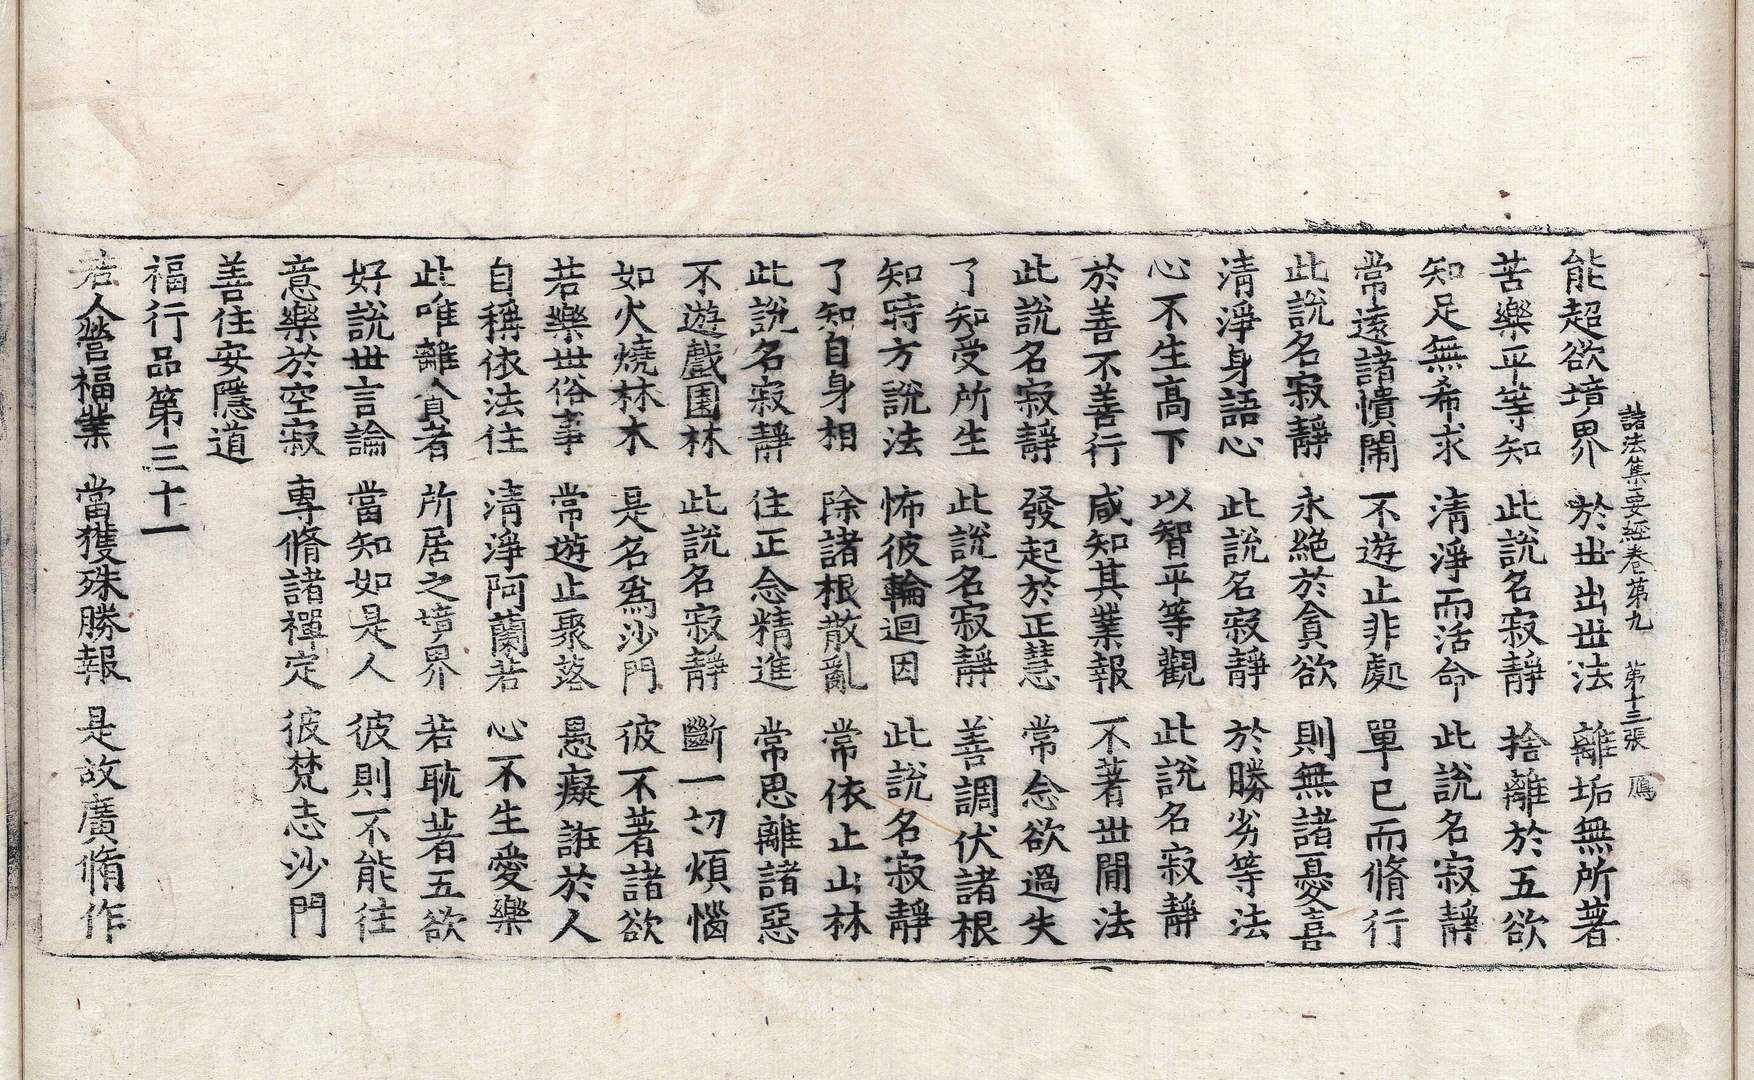 諸法集要經卷第九 第十三張 鴈
能超欲境界 於世出世法 離垢無所著
苦樂平等知 此說名寂靜 捨離於五欲
知足無希求 清淨而活命 此說名寂靜
常遠諸憒閙 不遊止非處 單已而脩行
此說名寂靜 永絶於貪欲 則無諸憂喜
清淨身語心 此說名寂靜 於勝劣等法
心不生高下 以智平等觀 此說名寂靜
於善不善行 咸知其業報 不著世間法
此說名寂靜 發起於正慧 常念欲過失
了知受所生 此說名寂靜 善調伏諸根
知時方說法 怖彼輪迴因 此說名寂靜
了知自身相 除諸根散亂 常依止山林
此說名寂靜 住正念精進 常思離諸惡
不遊戲園林 此說名寂靜 斷一切煩惱
如火燒林木 是名爲沙門 彼不著諸欲
若樂世俗事 常遊止聚落 愚癡誑於人
自稱依法住 清淨阿蘭若 心不生愛樂
此唯離貪者 所居之境界 若耽著五欲
好說世言論 當知如是人 彼則不能往
意樂於空寂 專脩諸禪定 彼梵志沙門
善住安隱道
福行品第三十一
若人營福業 當獲殊勝報 是故廣脩作